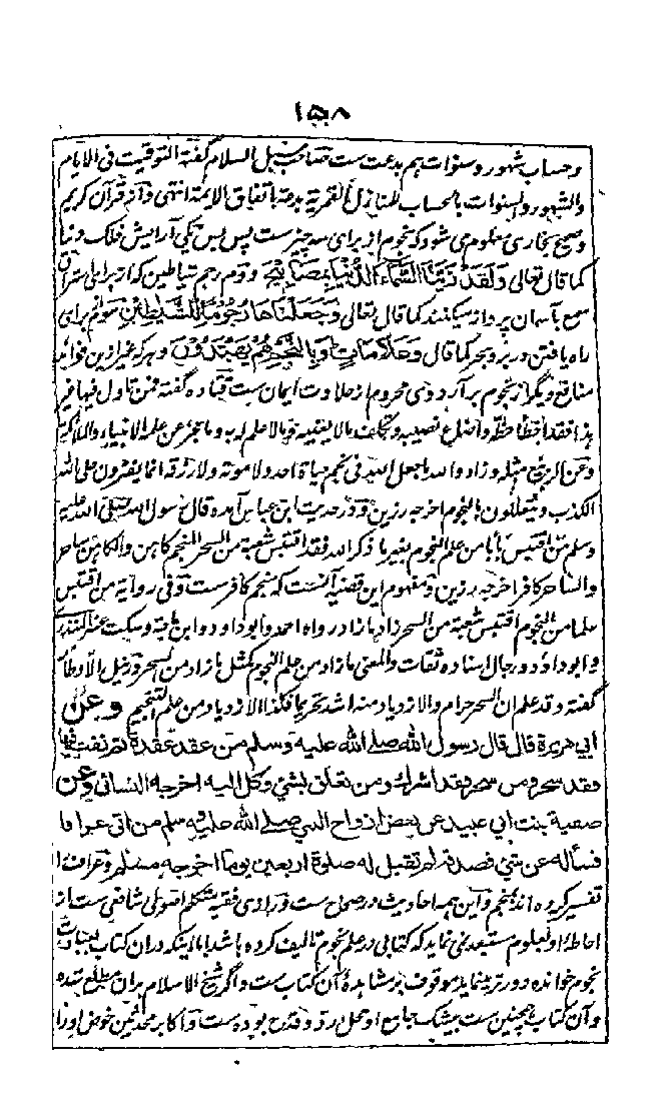 ۱۵۸
وحساب شهور و سنوات هم بدعت ست صاحب سبل السلام گفته التوقیت فی الایام
والشهور والسنوات بالحساب للمنازل القمریة بدعة باتفاق الائمة انتهی و از قرآن کریم
وصحیح بخاری معلوم می شود که نجوم از برای سه چیز ست پس بس یکی آرایش فلک دنیا
کما قال تعالی وَلَقَدْ زَيَّنَّا السَّمَاءَ الدُّنْيَا بِمَصَابِيحَ دوم رجم شیاطین که از برای استراق
سمع بآسمان پرواز میکنند کما قال تعالی وَجَعَلْنَاهَا رُجُومًا لِلشَّيَاطِينِ سوم برای
راه یافتن در بر و بحر کما قال وَعَلَامَاتٍ وَبِالنَّجْمِ هُمْ يَهْتَدُونَ و هر که غیر ازین فوائد
منافع دیگر از نجوم برآرد وی محروم از حلاوت ایمان ست قتاده گفته فمن تاول فیها غیر
هذا فقد اخطأ حظه واضاع نصیبه وتکلف مالا یعنیه ومالا علم له به وما عجز عن علمه الانبیاء والملائکة
وعن الربیع مثله وزاد والله ما جعل الله فی نجم حیاة احد ولا موته ولا رزقه انما یفترون علی الله
الکذب ویتعللون بالنجوم اخرجه رزین و در حدیث ابن عباس آمده قال رسول الله صلی الله علیه
وسلم من اقتبس بابا من علم النجوم بغیر ما ذکر الله فقد اقتبس شعبة من السحر المنجم کاهن والکاهن ساحر
والساحر کافر اخرجه رزین و مفهوم این قضیه آنست که منجم کافر ست و فی روایة من اقتبس
علما من النجوم اقتبس شعبة من السحر زاد ما زاد رواه احمد وابو داود وابن ماجة وسکت عنه المنذری
وابو داؤد ورجال اسناده ثقات والمعنی ما زاد من علم النجوم کمثل ما زاد من السحر در نیل الاوطار
گفته وقد علم ان السحر حرام والازدیاد منه اشد تحریما فکذا الازدیاد من علم التنجیم وعن
ابي هريرة قال قال رسول الله صلے الله عليه وسلم من عقد عقدة ثم نفث فيها
فقد سحر ومن سحر فقد اشرك ومن تعلق بشئ وكل اليه اخرجه النسائي وعن
صفية بنت ابي عبيد عن بعض ازواج النبي صلے الله عليه وسلم من اتى عرافا
فسأله عن شئ فصدقه لم تقبل له صلوة اربعين يوما اخرجه مسلم و عراف را
تفسیر کرده اند بمنجم و این همه احادیث در صحاح ست و رازی فقیه متکلم اصولی شافعی ست از
احاطۀ او بعلوم مستبعد نمی نماید که کتابی در علم نجوم تالیف کرده باشد اما اینکه دران کتاب بعبادت
نجوم خوانده دورتر مینماید موقوف بر مشاهدۀ آن کتاب ست و اگر شیخ الاسلام بران مطلع شده
و آن کتاب همچنین ست بیشک جامع او محل رد و قدح بوده ست و اکابر محدثین خوض او را